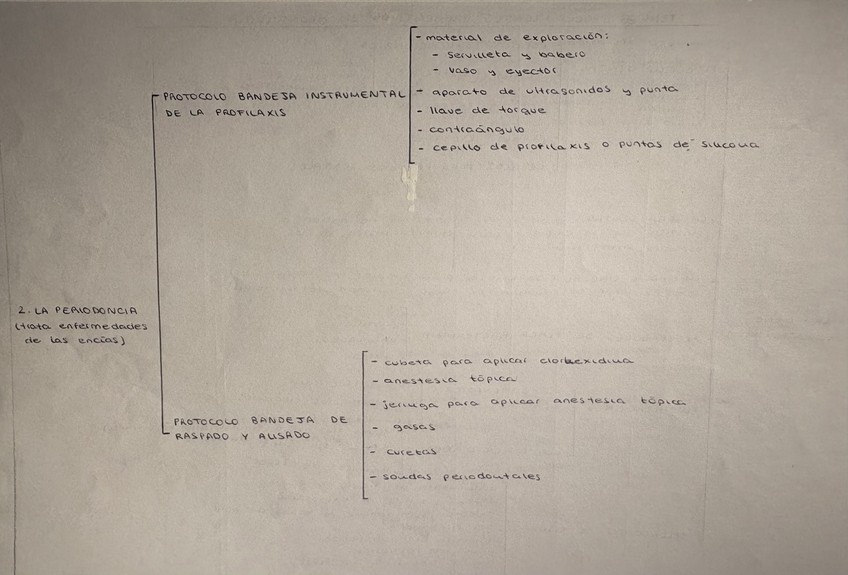 - material de exploración:
- servilleta y babero
- vaso y eyector
PROTOCOLO BANDEJA INSTRUMENTAL
DE LA PROFILAXIS
- aparato de ultrasonidos y punta
- llave de torque
- contraángulo
- cepillo de profilaxis o puntas de silicona
2. LA PERIODONCIA
(trata enfermedades
de las encías)
PROTOCOLO BANDEJA DE
RASPADO Y ALISADO
- cubeta para aplicar clorhexidina
- anestesia tópica
- jeringa para aplicar anestesia tópica
- gasas
- curetas
- sondas periodontales